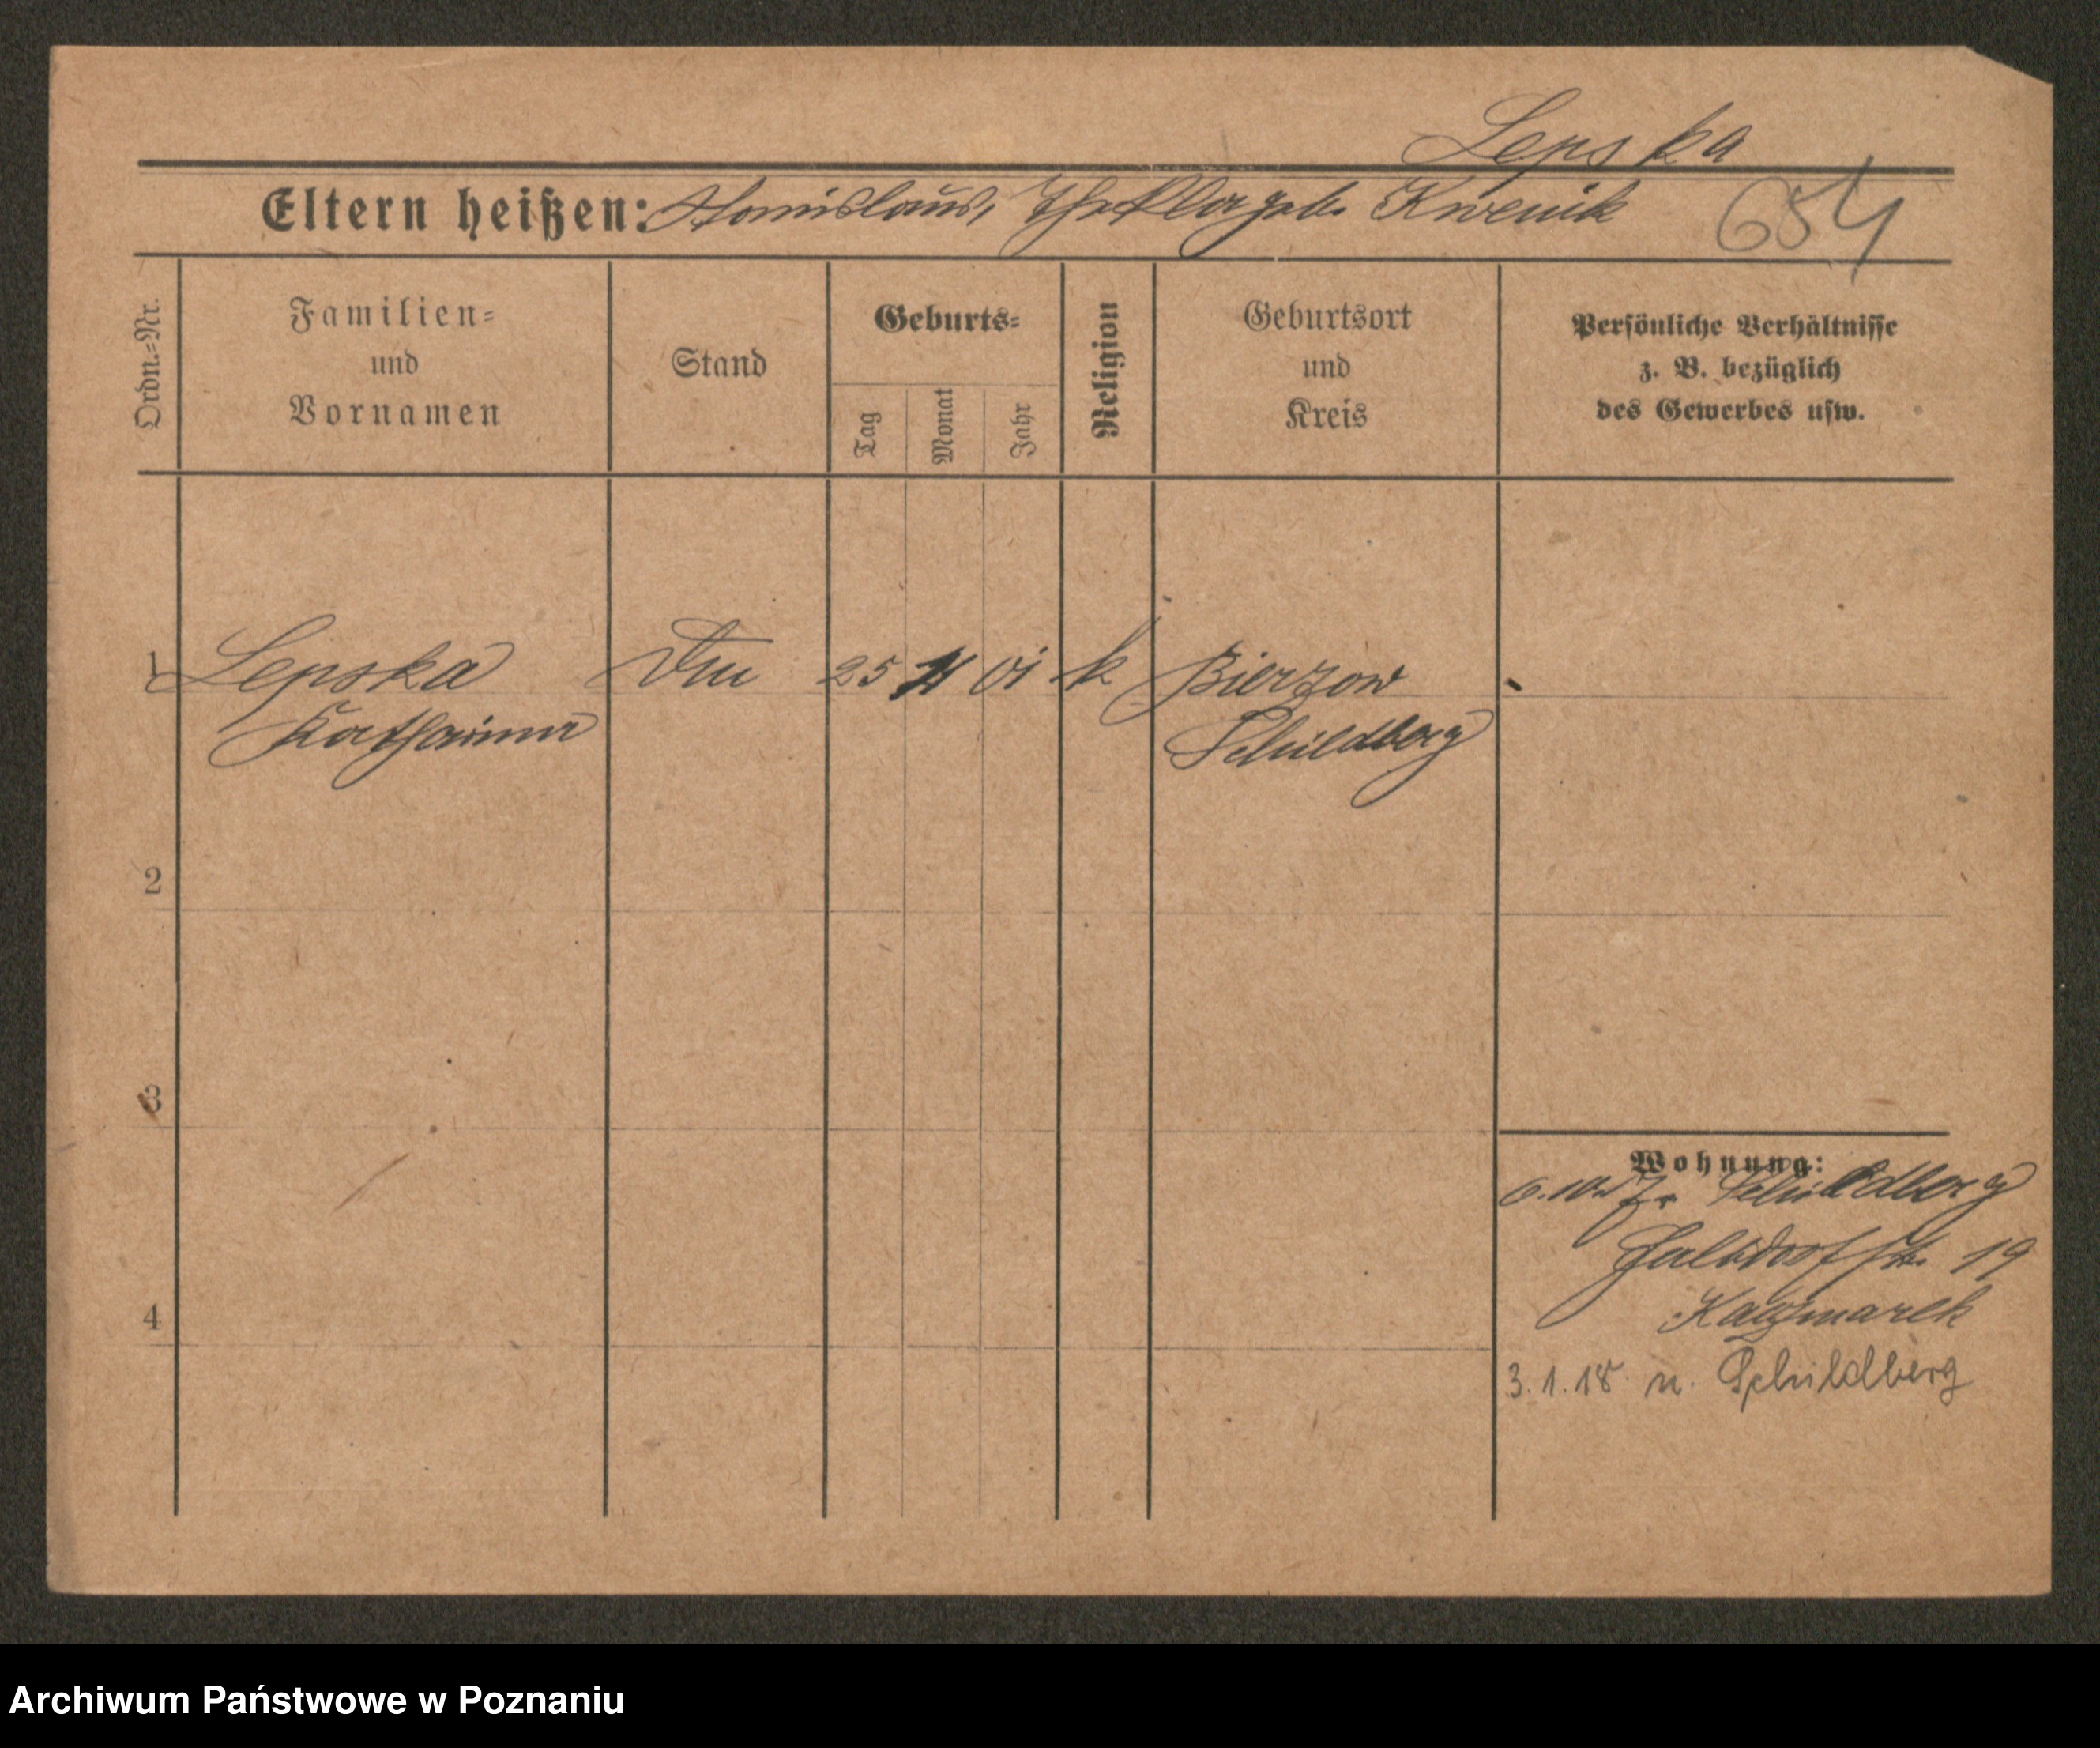 Lepska
Eltern heißen: Stanislaus, Thekla geb. Kwenik
654
Ordn.=Nr.
Familien=
und
Vornamen
Stand
Geburts=
Tag
Monat
Jahr
Religion
Geburtsort
und
Kreis
Persönliche Verhältnisse
z. B. bezüglich
des Gewerbes usw.
1 Lepska 25 01 k Bierzow
Katharina Schildberg
2
3
4
Wohnung:
Schildberg
19
Kaczmarek
3.1.18 n. Schildberg
Archiwum Państwowe w Poznaniu